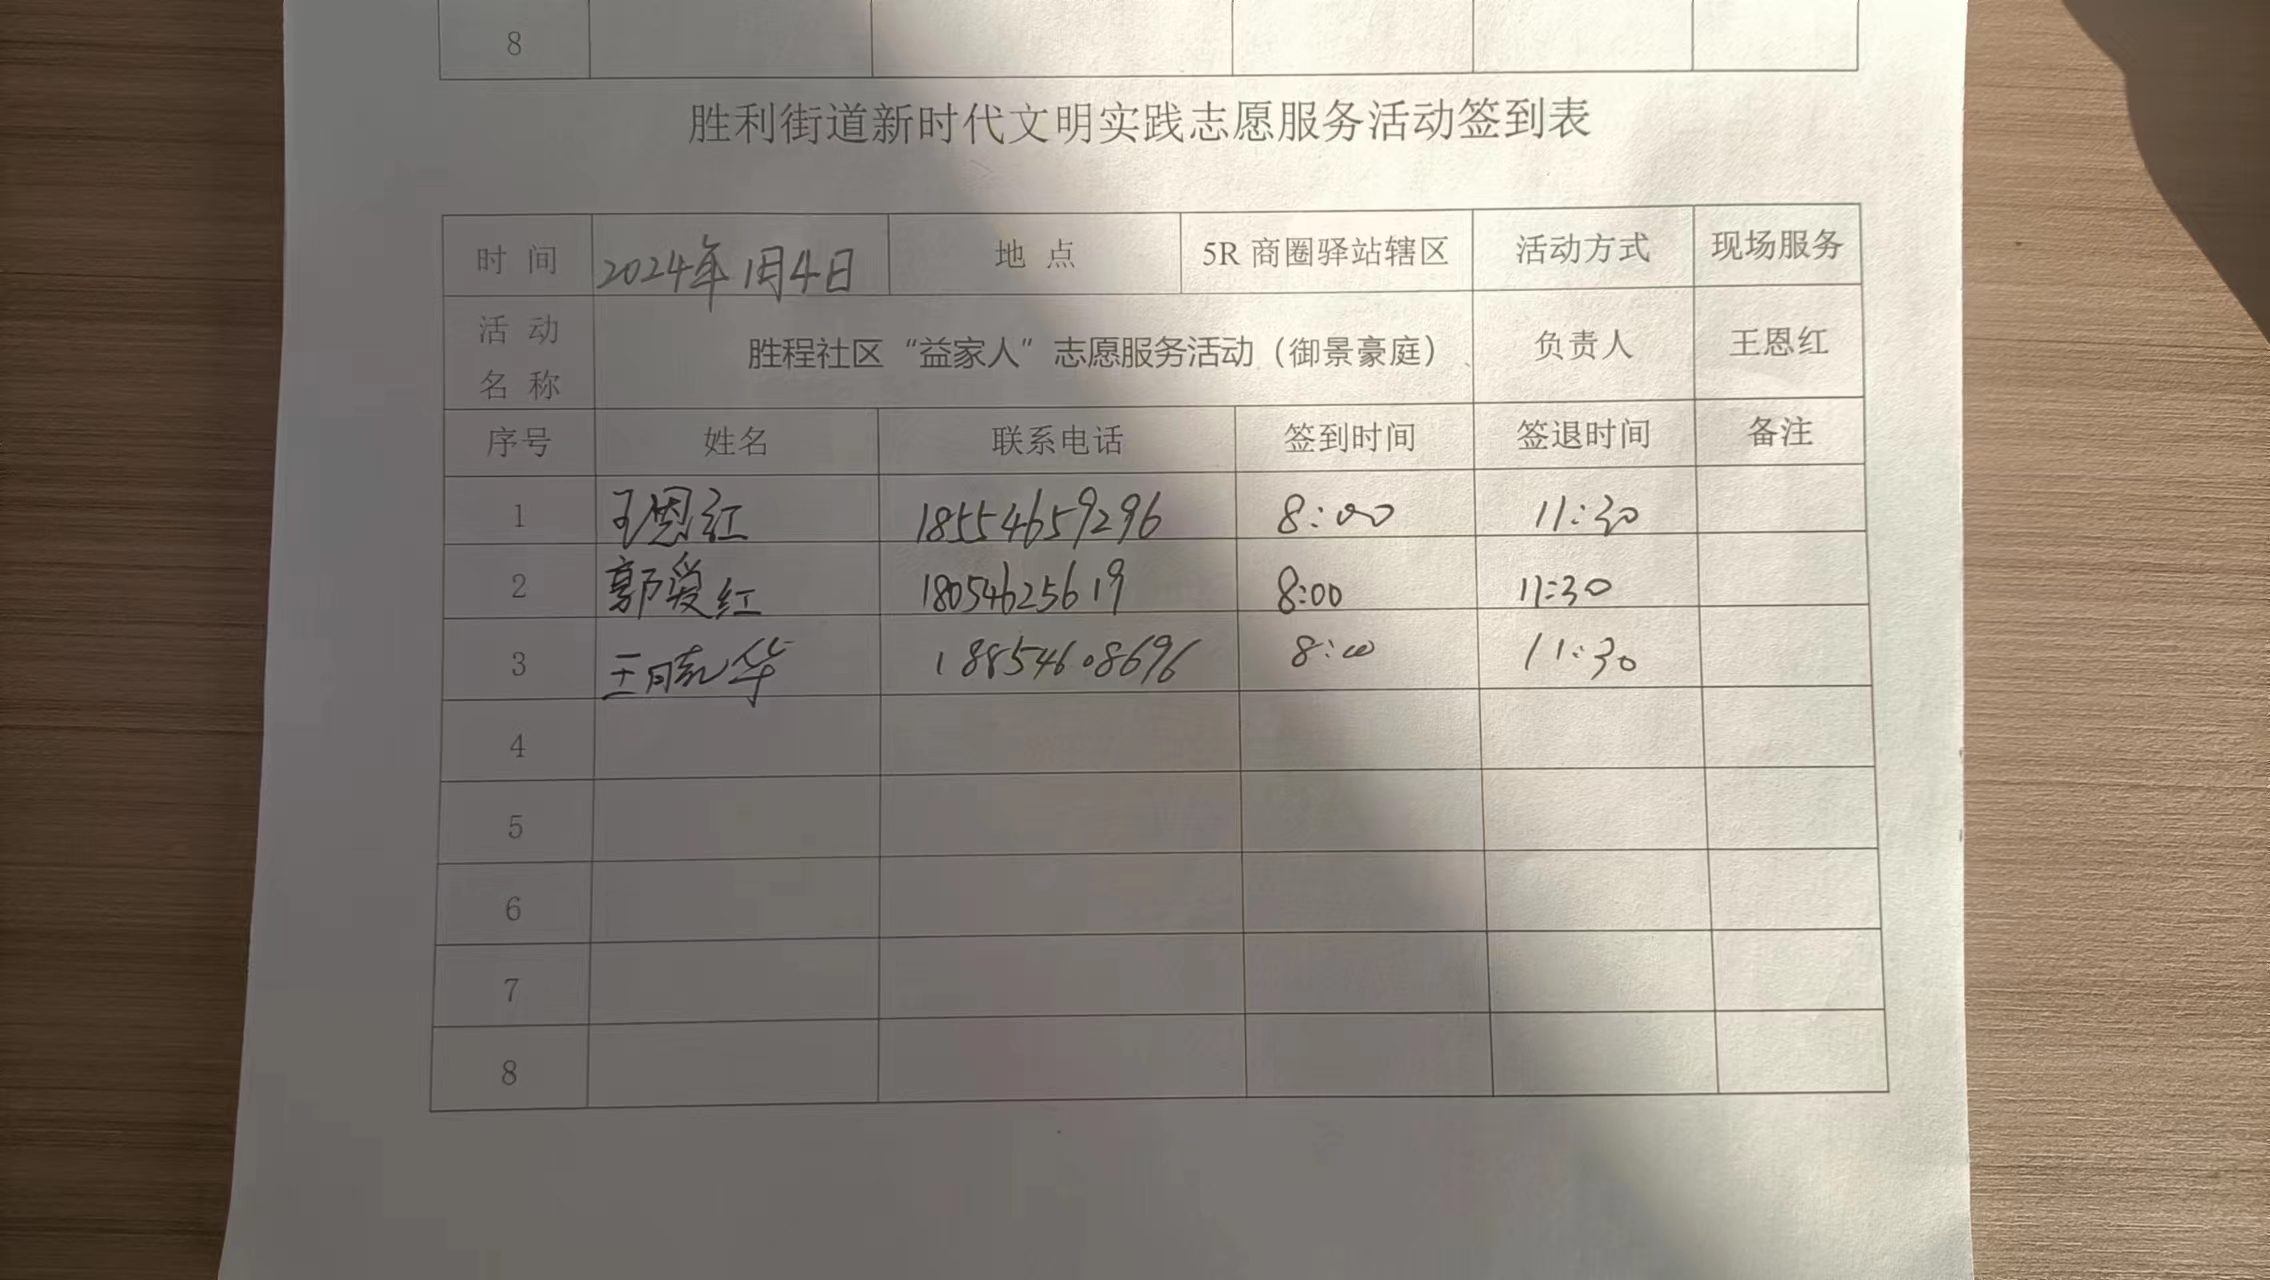 8
胜利街道新时代文明实践志愿服务活动签到表
时 间 2024年1月4日 地 点 5R 商圈驿站辖区 活动方式 现场服务
活 动 名 称 胜程社区“益家人”志愿服务活动（御景豪庭） 负责人 王恩红
序号 姓名 联系电话 签到时间 签退时间 备注
1 王恩红 18554659296 8:00 11:30
2 郭爱红 18054625619 8:00 11:30
3 王晓华 18854608696 8:00 11:30
4
5
6
7
8